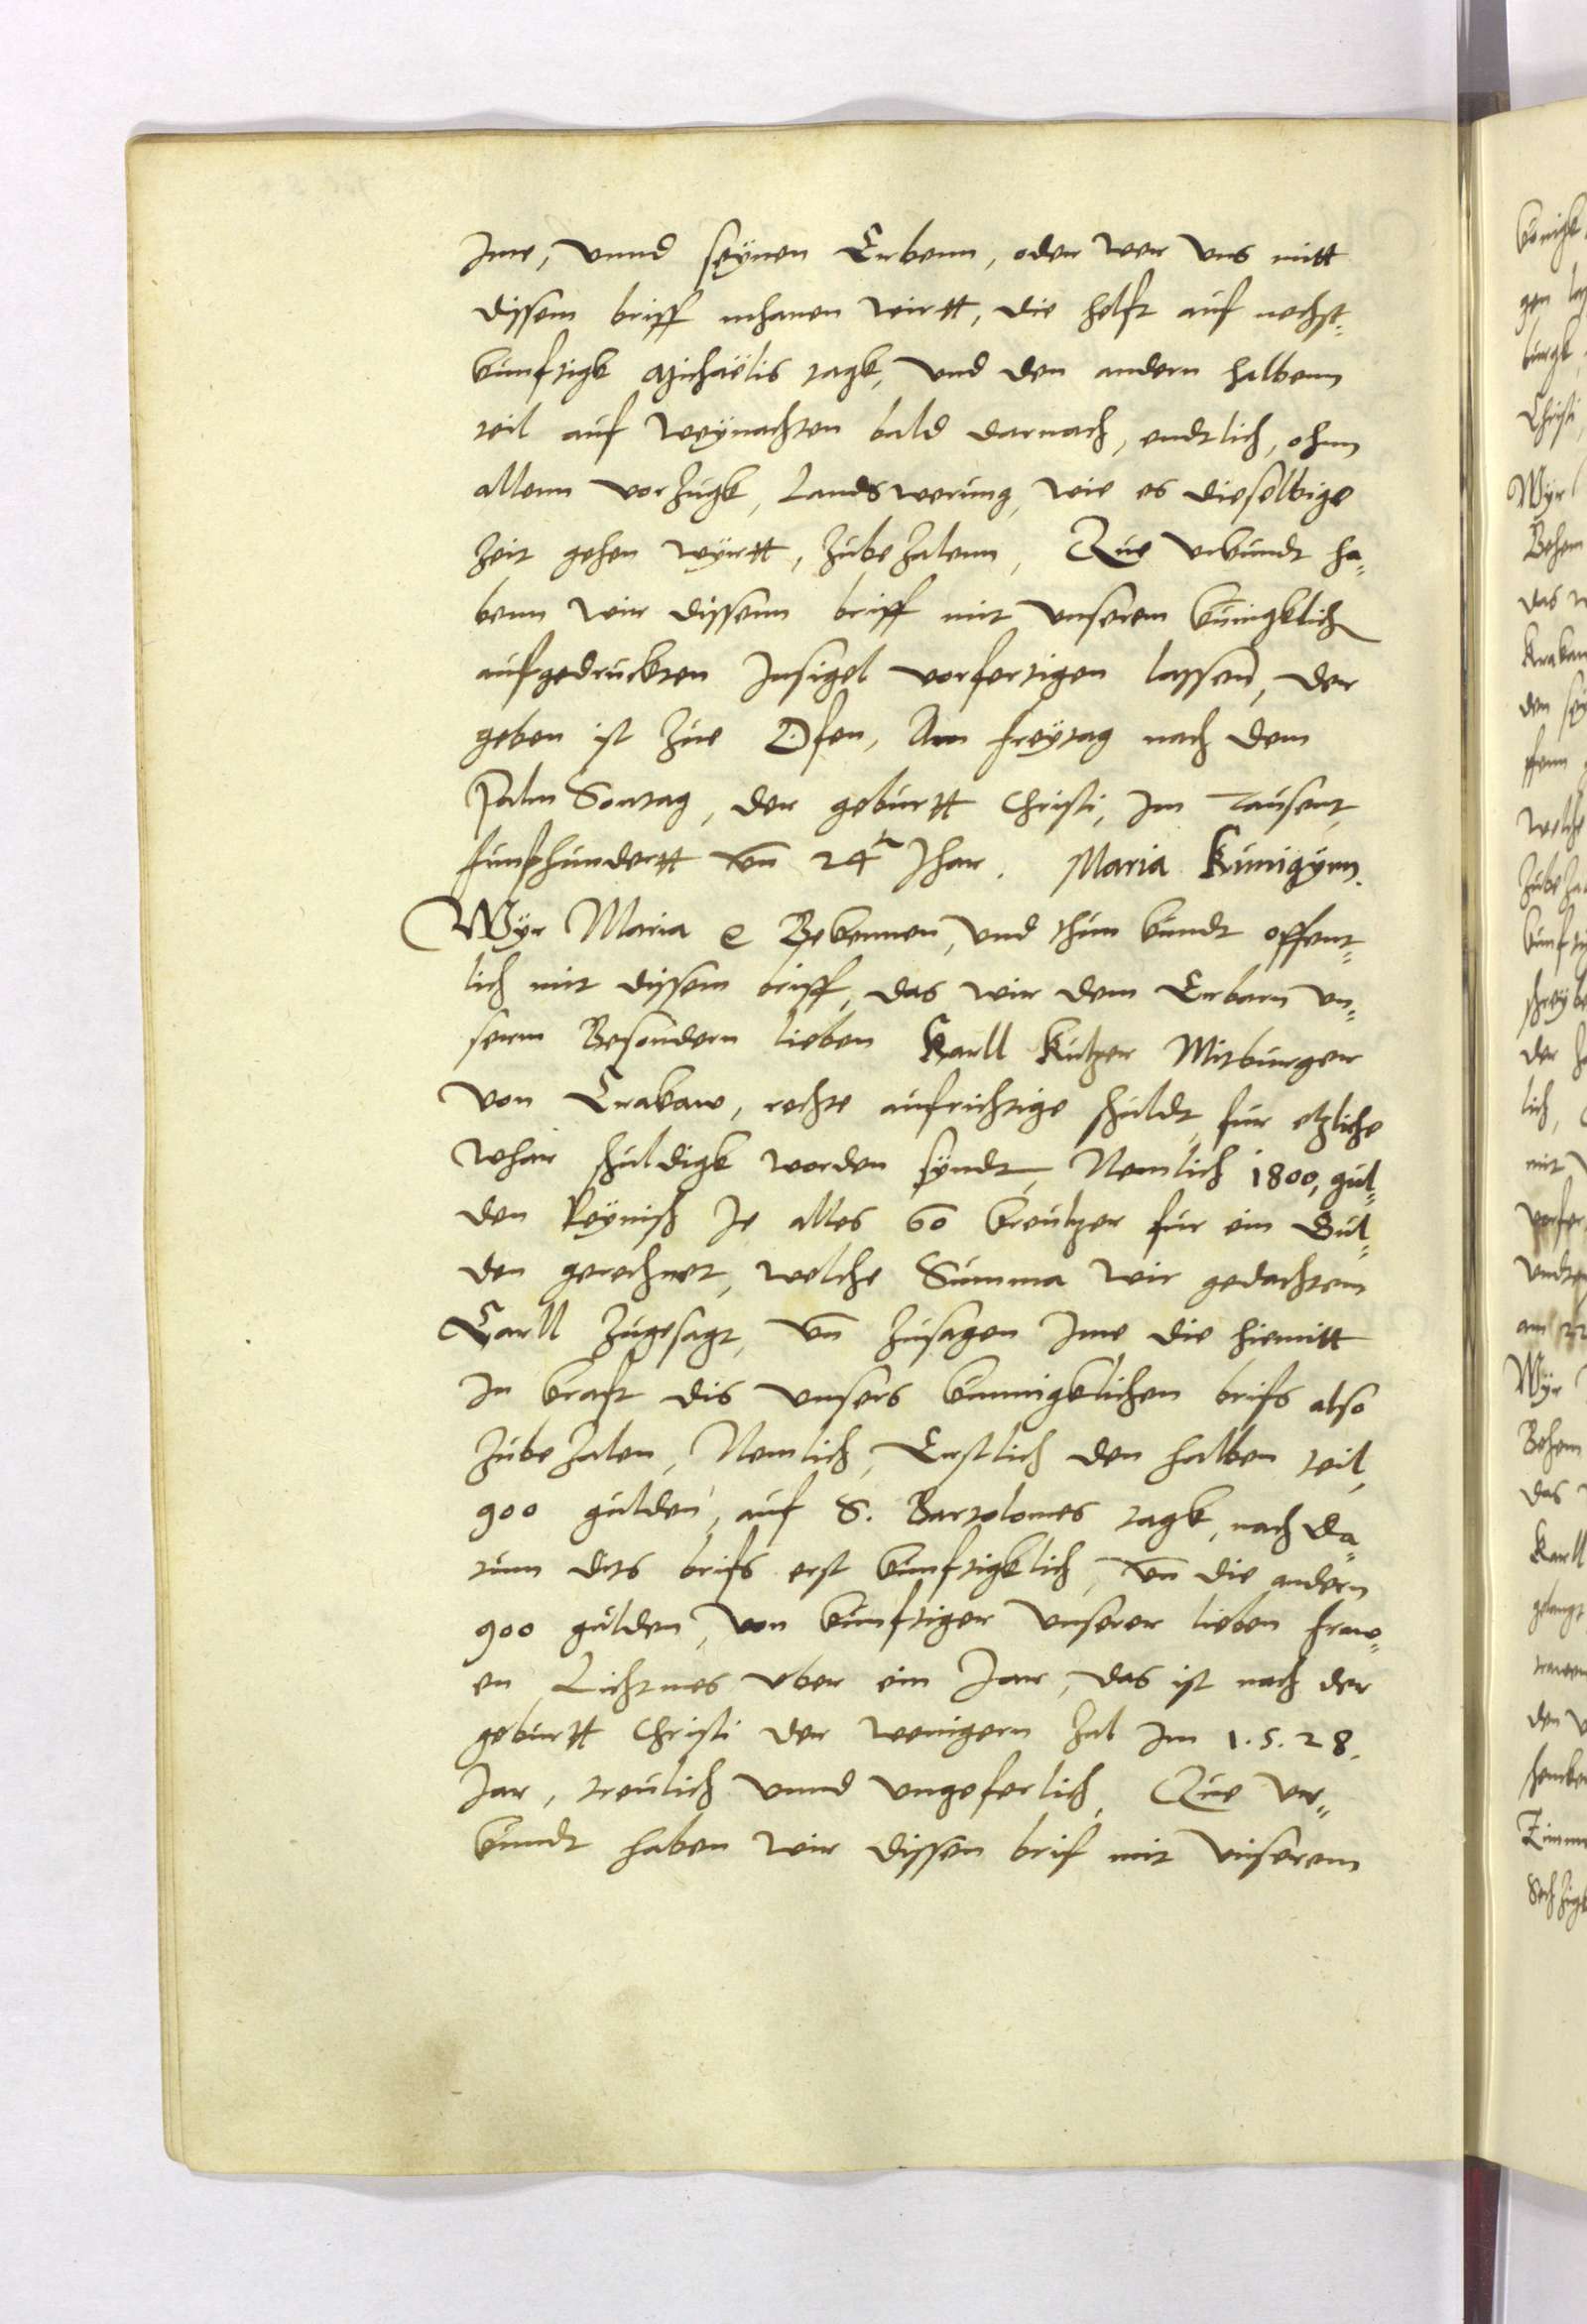 Ime, unnd seynen Erbenn, oder wer uns mitt
dissem briff mhanen wirtt, die helft auf nechst=
kunftigk Michaëlis tagk, und den andern halbenn
teil auf Weynachten bald darnach, endtlich, ohnn
allenn vorzugk, Landswerung, wie es dieselbige
zeit gehen wyrtt, zubezalenn, Zue urkundt ha=
benn wir dissenn briff mit unserem künigklich
aufgedruckten Insigel vorfertigen lassen, der
geben ist zue Ofen, Am freytag nach dem
Palm Sontag, der geburtt Christi, Im Tausent,
funfhundertt un 24t Jhar. Maria Kunigynn.
Wyr Maria e Bekennen, und thun kundt offent=
lich mit dissem briff, das wir dem Erbarn un=
serm Besondern lieben Karll Kutzer Mitburger
von Crakaw, rechte aufrichtige schuldt fur etzliche
whar schuldigk worden syndt, Nemlich 1800, gul=
den Reynisch Je alles 60 kreutzer fur ein Gul=
den gerechnet, welche Summa wir gedachtem
Carll zugesagt, un zusagen Ime die hiemitt
In kraft dis unsers kunnigklichen brifs also
zubezalen, Nemlich, Erstlich den halben teil,
900 gulden, auf S. Bartolomes tagk, nach da=
tum dits brifs erst kunftigklich, un die andern
900 gulden, von kunftiger unserer lieben fraw=
en Lichtmes uber ein Jar, das ist nach der
geburtt Christi der wenigern zal Im 1.5.28.
Jar, treulich unnd ungeferlich, Zue ur=
kundt haben wir dissen brif mit unserem